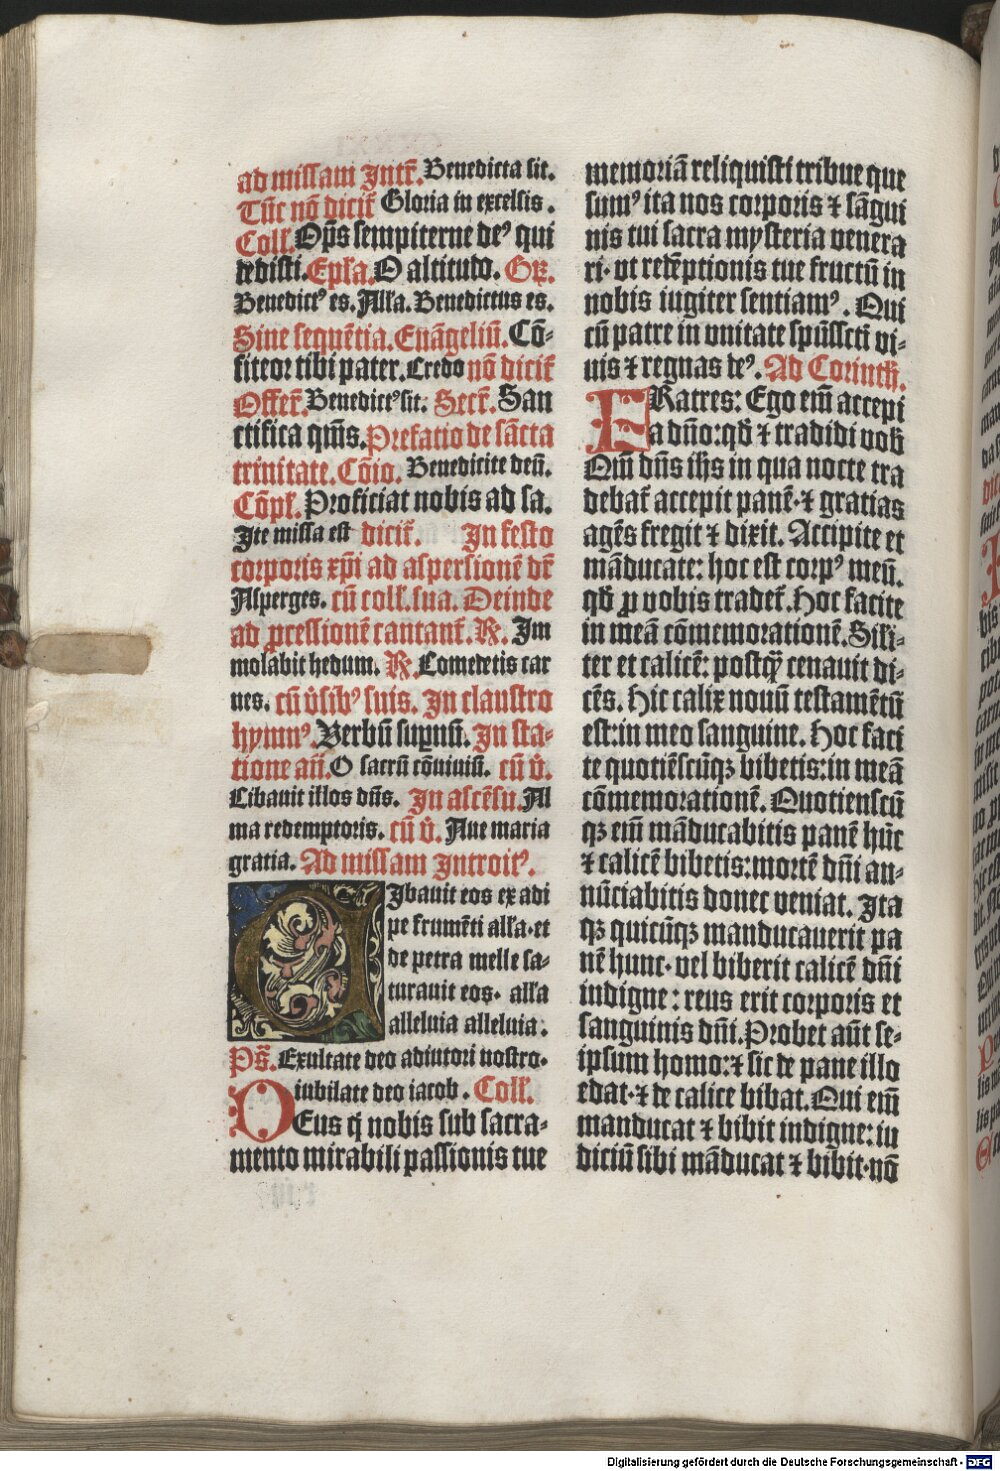 ad missam Intr̄. Benedicta sit.
Tūc nō dicit̄ Gloria in excelsis.
Coll̄. Op̄s sempiterne deꝰ qui
dedisti. Ep̄la. O altitudo. Gr̄.
Benedictꝰ es. All̄a. Benedictus es.
Sine sequētia. Euāgeliū. Cō-
fiteor tibi pater. Credo nō dicit̄
Offer̄. Benedictꝰ sit. Secr̄. San
ctifica qm̄s. Prefatio de sācta
trinitate. Cōio. Benedicite deū.
Cōpl̄. Proficiat nobis ad sa.
Ite missa est dicit̄. In festo
corporis xp̄i ad aspersionē dr̄
Asperges. cū coll̄. sua. Deinde
ad ꝓcessionē cantant̄. ℟. Im
molabit hedum. ℟. Comedetis car
nes. cū v̄sibꝰ suis. In claustro
hymnꝰ. Verbū suꝑnū. In sta-
tione añ. O sacrū cōuiuiū. cū v̄.
Cibauit illos dn̄s. In ascēsu. Al
ma redemptoris. cū v̄. Aue maria
gratia. Ad missam Introitꝰ.
CIbauit eos ex adi
pe frumēti all̄a. et
de petra melle sa-
turauit eos. all̄a
alleluia alleluia.
Ps̄. Exultate deo adiutori nostro.
iubilate deo iacob. Coll̄.
DEus q̄ nobis sub sacra-
mento mirabili passionis tue
memoriā reliquisti tribue que
sumꝰ ita nos corporis ⁊ sāgui
nis tui sacra mysteria venera
ri. vt redēptionis tue fructū in
nobis iugiter sentiamꝰ. Qui
cū patre in vnitate spūsscti vi-
uis ⁊ regnas deꝰ. Ad Corinth̄.
FRatres: Ego em̄ accepi
a dn̄o: qd̄ ⁊ tradidi vob̄
Qm̄ dn̄s ih̄s in qua nocte tra
debat̄ accepit panē. ⁊ gratias
agēs fregit ⁊ dixit. Accipite et
māducate: hoc est corpꝰ meū.
qd̄ ꝓ vobis tradet̄. Hoc facite
in meā cōmemorationē. Sili-
ter et calicē: postq̄ȝ cenauit di-
cēs. Hic calix nouū testamētū
est: in meo sanguine. Hoc faci
te quotiēscūqꝫ bibetis: in meā
cōmemorationē. Quotienscū
qꝫ em̄ māducabitis panē hūc
⁊ calicē bibetis: mortē dn̄i an-
nūciabitis donec veniat. Ita
qꝫ quicūqꝫ manducauerit pa
nē hunc. vel biberit calicē dn̄i
indigne: reus erit corporis et
sanguinis dn̄i. Probet aūt se-
ipsum homo: ⁊ sic de pane illo
edat. ⁊ de calice bibat. Qui em̄
manducat ⁊ bibit indigne: iu
diciū sibi māducat ⁊ bibit. nō
Digitalisierung gefördert durch die Deutsche Forschungsgemeinschaft - DFG